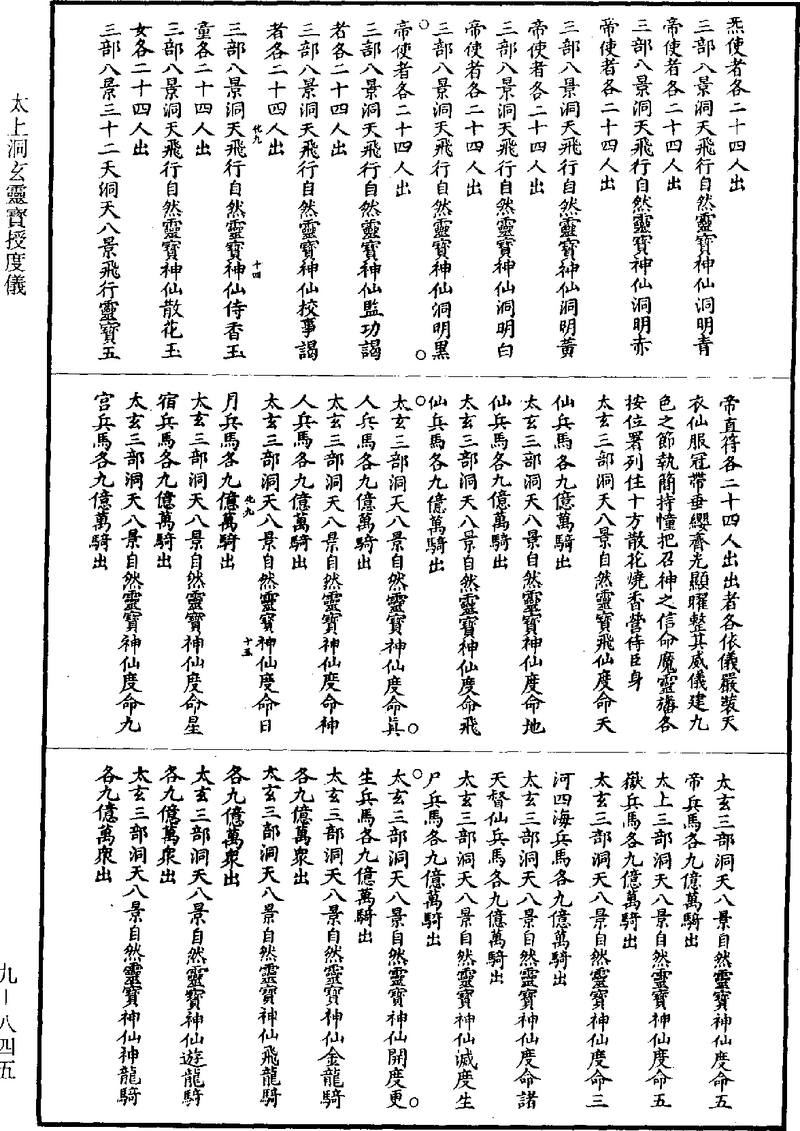 炁使者各二十四人出
三部八景洞天飛行自然靈寶神仙洞明青
帝使者各二十四人出
三部八景洞天飛行自然靈寶神仙洞明赤
帝使者各二十四人出
三部八景洞天飛行自然靈寶神仙洞明黃
帝使者各二十四人出
三部八景洞天飛行自然靈寶神仙洞明白
帝使者各二十四人出
三部八景洞天飛行自然靈寶神仙洞明黑
帝使者各二十四人出
三部八景洞天飛行自然靈寶神仙監功謁
者各二十四人出
三部八景洞天飛行自然靈寶神仙校事謁
者各二十四人出
化九 十四
三部八景洞天飛行自然靈寶神仙侍香玉
童各二十四人出
三部八景洞天飛行自然靈寶神仙散花玉
女各二十四人出
三部八景三十二天洞天八景飛行靈寶五
帝直符各二十四人出出者各依儀嚴裝天
衣仙服冠帶垂纓齊光顯曜整其威儀建九
色之節執簡持幢把召神之信命魔靈旛各
按位署列住十方散花燒香營侍臣身
太玄三部洞天八景自然靈寶飛仙度命天
仙兵馬各九億萬騎出
太玄三部洞天八景自然靈寶神仙度命地
仙兵馬各九億萬騎出
太玄三部洞天八景自然靈寶神仙度命飛
仙兵馬各九億萬騎出
太玄三部洞天八景自然靈寶神仙度命真
人兵馬各九億萬騎出
太玄三部洞天八景自然靈寶神仙度命神
人兵馬各九億萬騎出
太玄三部洞天八景自然靈寶神仙度命日
化九 十五
月兵馬各九億萬騎出
太玄三部洞天八景自然靈寶神仙度命星
宿兵馬各九億萬騎出
太玄三部洞天八景自然靈寶神仙度命九
宮兵馬各九億萬騎出
太玄三部洞天八景自然靈寶神仙度命五
帝兵馬各九億萬騎出
太上三部洞天八景自然靈寶神仙度命五
嶽兵馬各九億萬騎出
太玄三部洞天八景自然靈寶神仙度命三
河四海兵馬各九億萬騎出
太玄三部洞天八景自然靈寶神仙度命諸
天督仙兵馬各九億萬騎出
太玄三部洞天八景自然靈寶神仙滅度生
尸兵馬各九億萬騎出
太玄三部洞天八景自然靈寶神仙開度更
生兵馬各九億萬騎出
太玄三部洞天八景自然靈寶神仙金龍騎
各九億萬衆出
太玄三部洞天八景自然靈寶神仙飛龍騎
各九億萬衆出
太玄三部洞天八景自然靈寶神仙遊龍騎
各九億萬衆出
太玄三部洞天八景自然靈寶神仙神龍騎
各九億萬衆出
太上洞玄靈寶授度儀
九－八四五